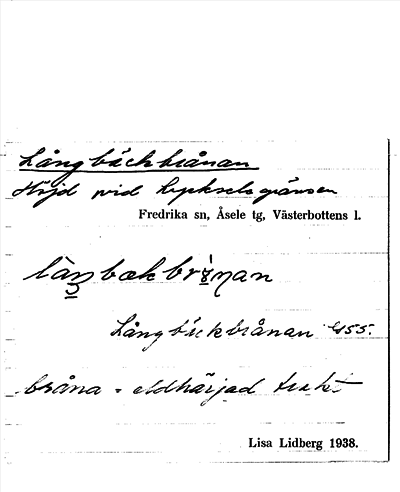 Långbäckbrånan
Höjd vid Lyckselegränsen
Fredrika sn, Åsele tg, Västerbottens l.
Långbäckbrånan 455.
bråna = eldhärjad trakt
Lisa Lidberg 1938.